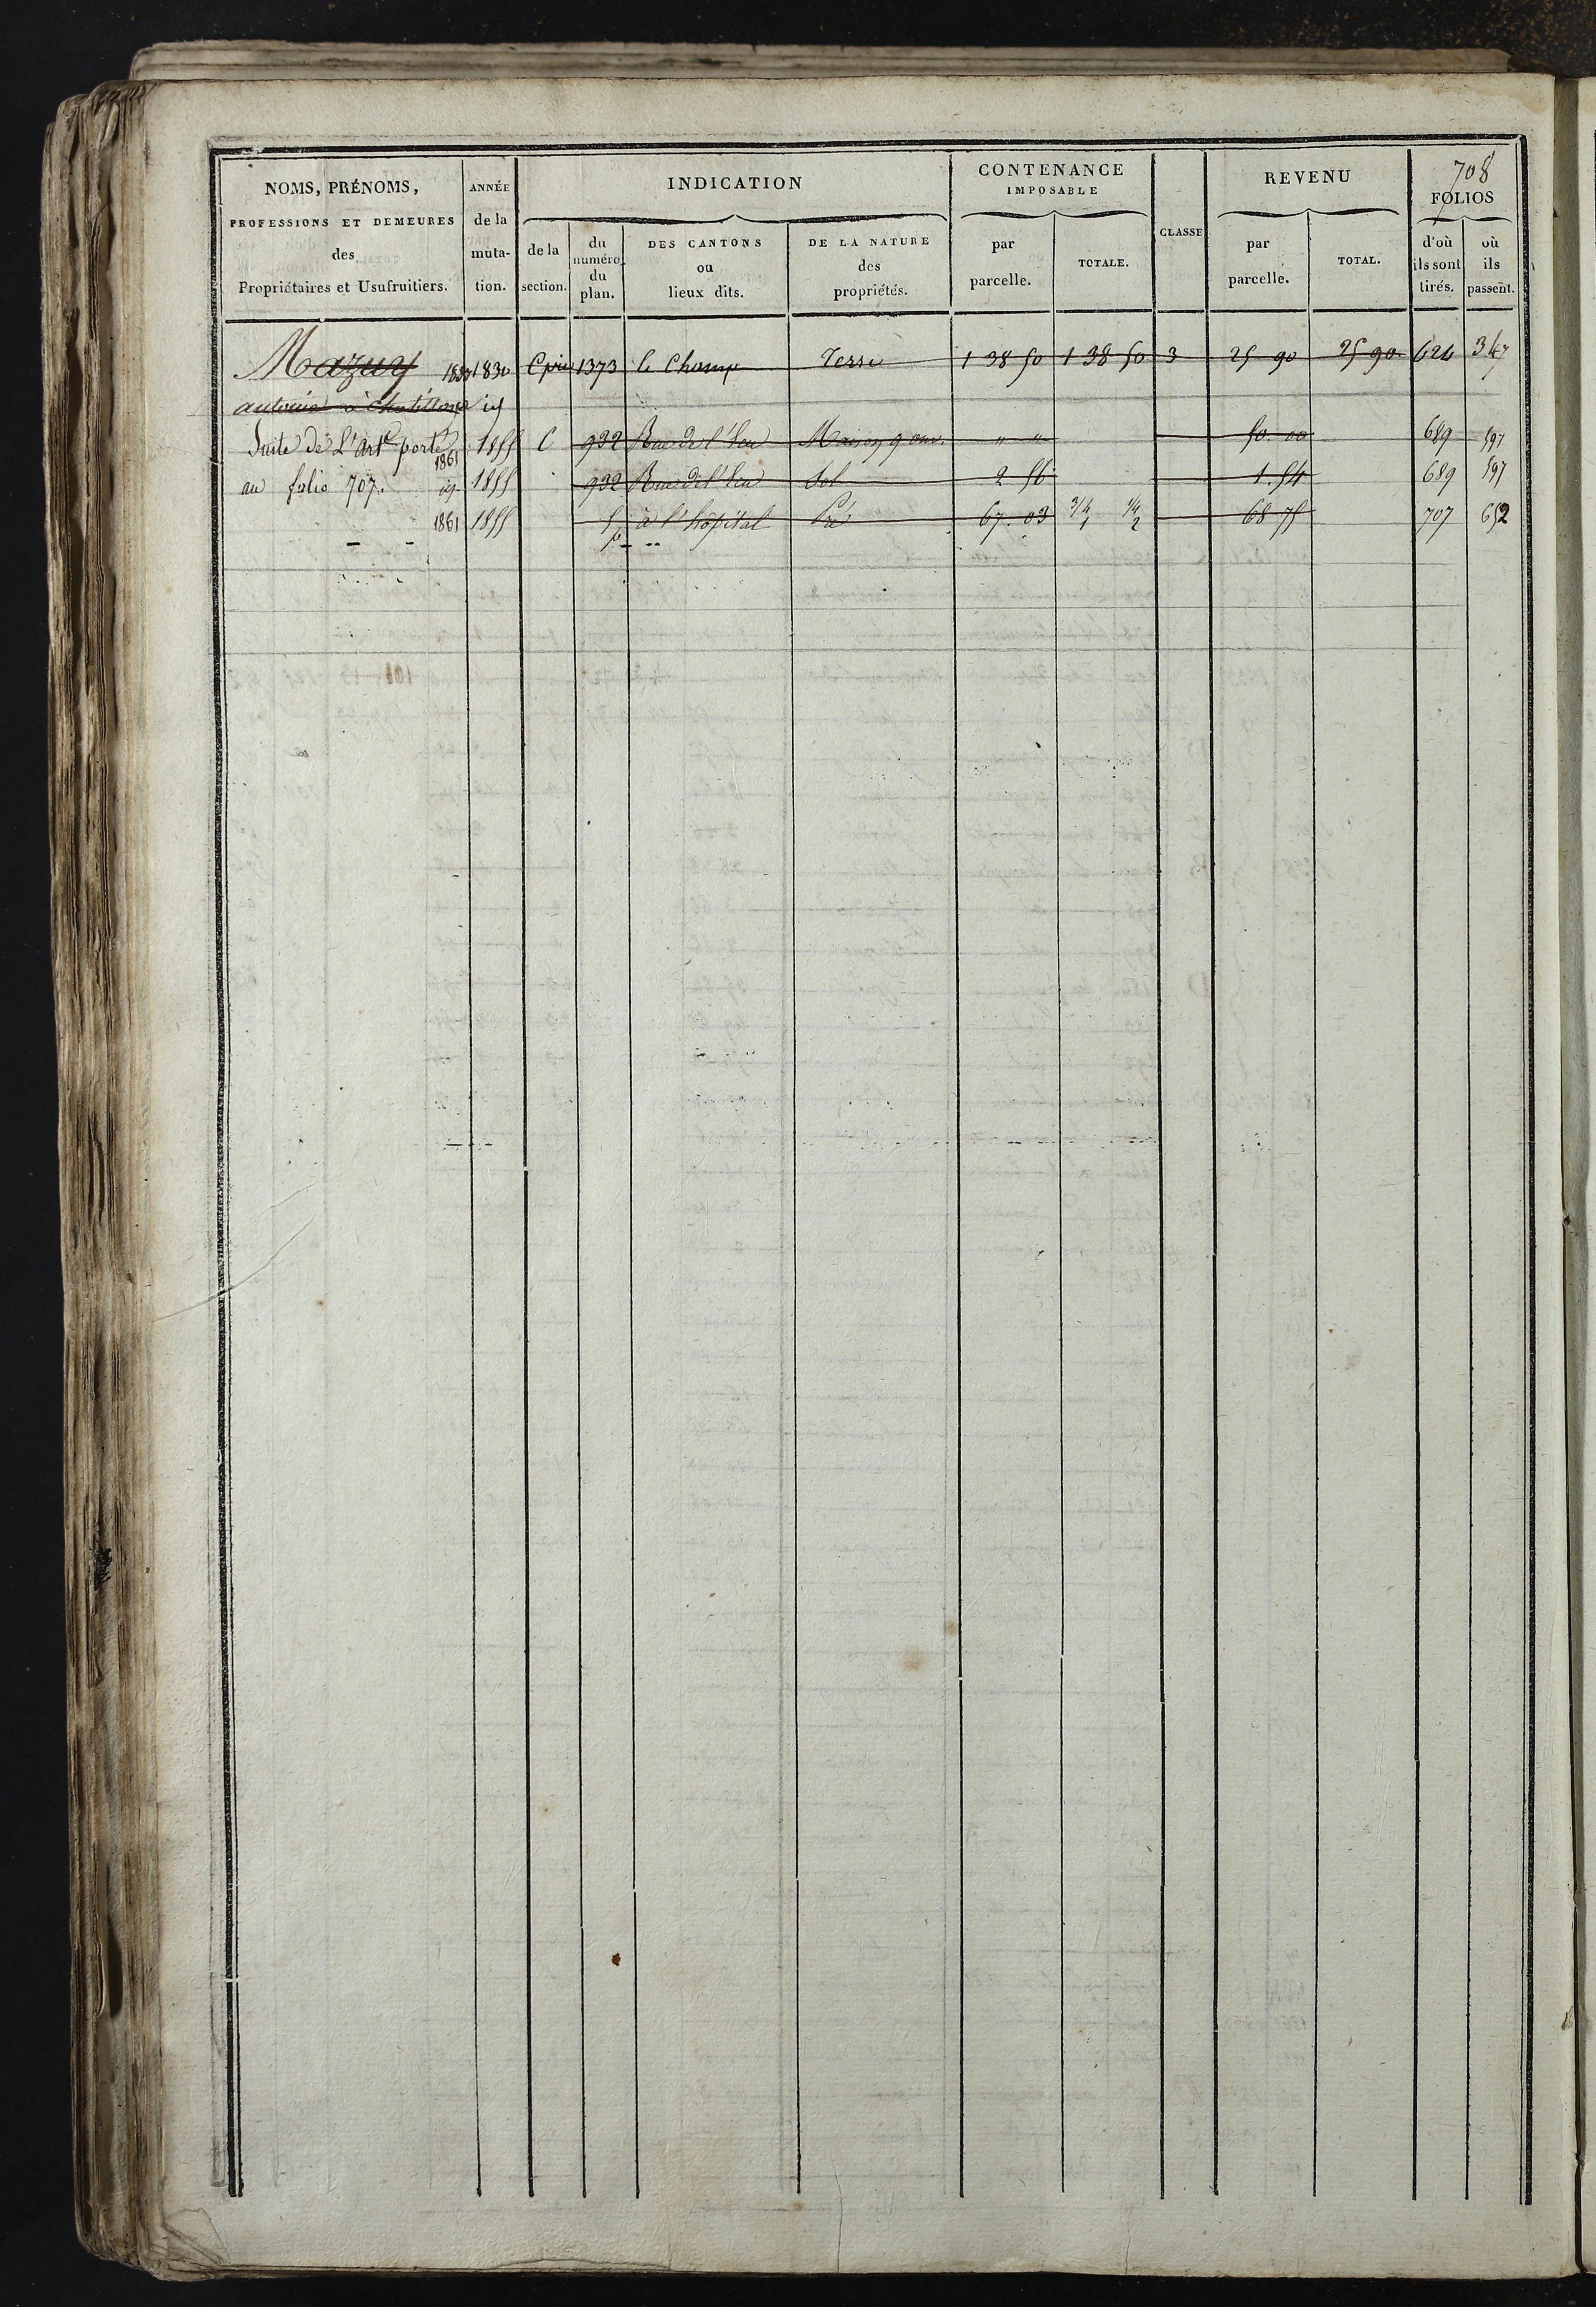 708
NOMS, PRÉNOMS,
PROFESSIONS ET DEMEURES
des
Propriétaires et Usufruitiers.
ANNÉE
de la
muta-
tion.
INDICATION
de la
section.
du
numéro
du
plan.
DES CANTONS
ou
lieux dits.
DE LA NATURE
des
propriétés.
CONTENANCE
IMPOSABLE
par
parcelle.
TOTALE.
CLASSE
REVENU
par
parcelle.
TOTAL.
FOLIOS
d'où
ils sont
tirés.
où
ils
passent.
Mazuy 1830 1373 le Champ Terre 1 38 50 1 38 50 3 25 90 25 90 624 347
antoine à Chatillon
Suite de L'artᵉ porté 1855 C 932 Rue de l' Maison 9 ouv. " " 50. 00 689 597
au folio 707. 1861 1855 932 Rue de l' Sol 2 56 1. 54 689 597
1861 1855 5p à l'hôpital Pré 67. 03 3/4 1 1/4 2 68 75 707 652